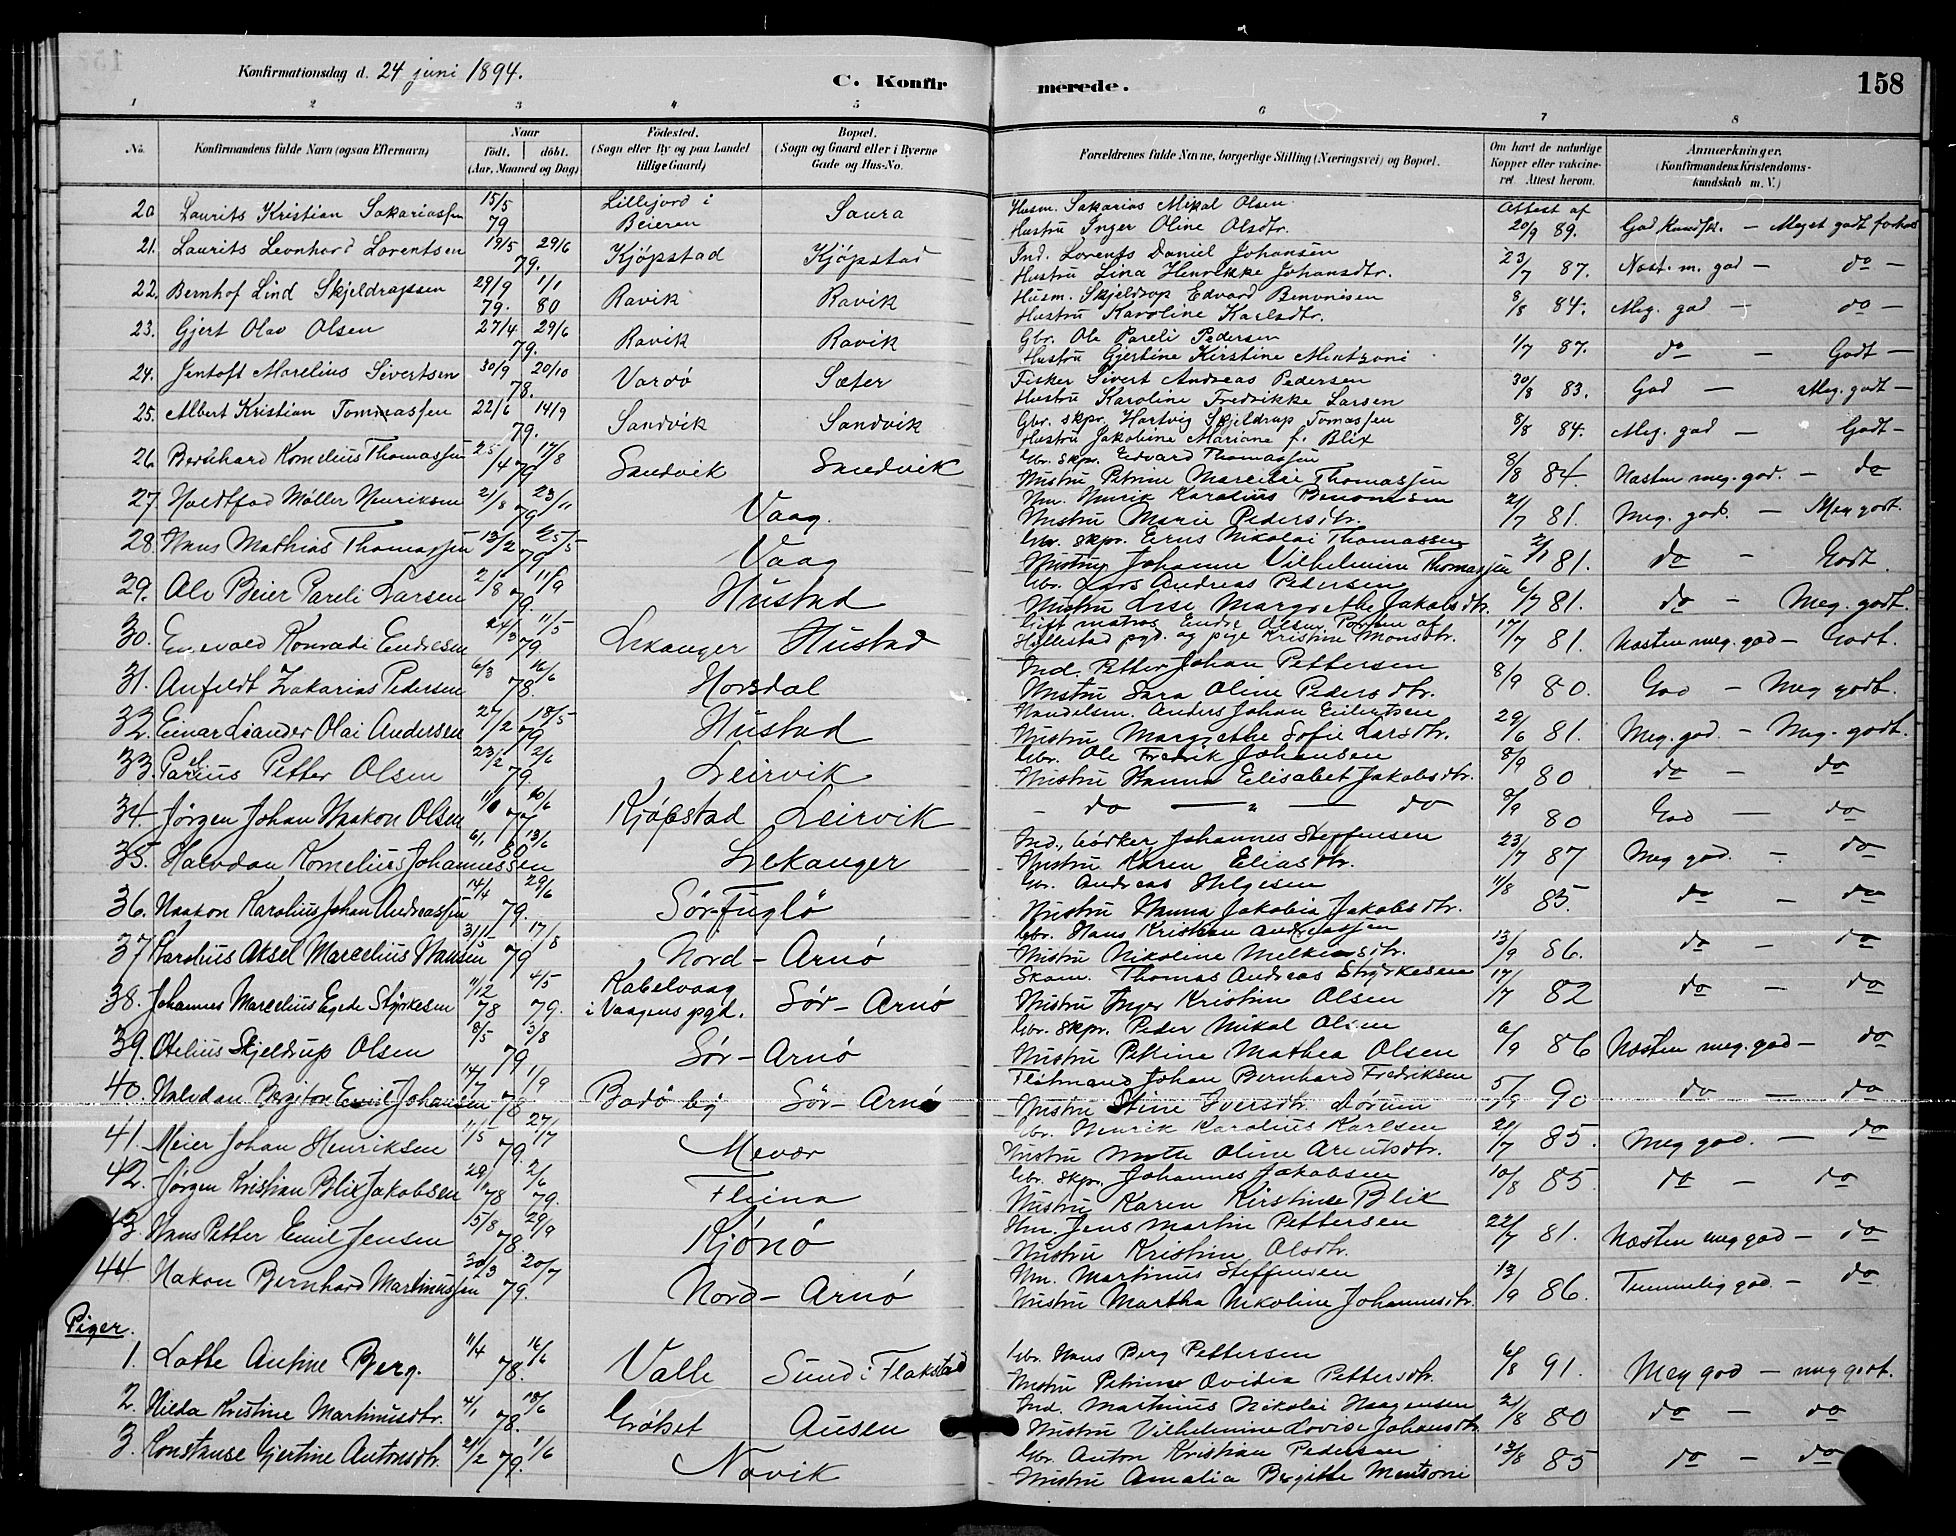 Konfirmationsdag d. 24 juni 1894.
C. Konfirmerede.
158
1 2 3 4 5 6 7 8
No. Konfirmandens fulde Navn (ogsaa Efternavn) Naar født, døbt. (Aar, Maaned og Dag) Fødested. (Sogn eller By og paa Landet tillige Gaard) Bopæl. (Sogn og Gaard eller i Byerne Gade og Hus-No. Forældrenes fulde Navne, borgerlige Stilling (Næringsvei) og Bopæl. Om havt de naturlige Kopper eller vakcineret. Attest herom. Anmærkninger. (Konfirmandens Kristendomskundskab m. V.)
20 Laurits Kristian Sakariassen 15/5 79 Lillejord i Beieren Saura Husm. Sakarias Mikal Olsen Hustru Inger Oline Olsdtr. Attest af 20/9 89. God kundsk. - Meget godt forhold
21. Laurits Leonhard Lorentsen 19/5 29/6 79. Kjøpstad Kjøpstad Ind. Lorents Daniel Johansen Hustru Lina Henrikke Johansdtr. 23/7 87. Næst. m. god - do -
22. Bernhof Lind Skjeldrapssen 29/9 79. 1/1 80 Ravik Ravik Husm. Skjeldrap Edvard Benonisen Hustru Karoline Karlsdtr. 8/8 84. Meg. god - do -
23. Gjert Olav Olsen 27/4 29/6 79. Ravik Ravik Gbr. Ole Pareli Pedersen Hustru Gjertine Kirstine Mentzoni 1/7 87. do - Godt -
24. Jentoft Marelius Sivertsen 30/9 20/10 78. Vardø Sæter Fisker Sivert Andreas Pedersen Hustru Karoline Fredrikke Larsen 30/8 83. God - Meg. godt -
25. Albert Kristian Tommassen 22/6 14/9 79. Sandvik Sandvik Gbr. skpr. Hartvig Skjeldrap Tomassen Hustru Jakobine Mariane f. Blix 8/8 84. Meg. god - Godt -
26 Bernhard Kornelius Thomassen 25/4 17/8 79 Sandvik Sandvik Gbr. skpr. Edvard Thomassen Hustru Petrine Thomassen 8/8 84. Næsten meg. god. - do
27. Møller Henriksen 2/8 23/11 79 Vaag. Hm. Henrik Karolius Benonisen Hustru Marie Pedersdtr. 21/7 81. Meg. god. - Meg godt.
28. Hans Mathias Thomassen 13/2 25/5 79 Vaag Gbr. skpr. Nikolai Thomassen Hustru Johanne Vilhelmine Thomassen 81. do - Godt.
29. Beier Pareli Larsen 2/8 11/9 79. Hustad Gbr. Lars Andreas Pedersen Hustru Lise Margrethe Jakobsdtr. 6/7 81. do - Meg. godt.
30. Enevald Konradi Endresen 24/3 11/5 79. Lekanger Hustad matros Endre Olsen af Hillestad pgd. og pige Kristine Monsdtr. 17/7 81. Næsten meg. god - Godt.
31. Anfeldt Zakarias Pedersen 6/3 16/6 78. Horsdal Ind. Petter Johan Pettersen Hustru Sara Oline Pedersdtr. 8/9 80. God - Meg godt.
32. Einar Leander Olai Andersen 27/2 18/5 79 Hustad Handelsm. Anders Johan Eilertsen Hustru Margrethe Sofie Larsdtr. 29/6 81. Meg. god. - Meg. godt.
33. Petter Olsen 23/2 2/6 79. Leirvik Gbr. Ole Fredrik Johansen Hustru Hanna Elisabet Jakobsdtr. 8/9 80 do - do
34. Jørgen Johan Haakon Olsen 77 Kjøbstad Leirvik - do - " - do 9/9 80 God - do
35. Halvdan Kornelius Johannessen 6/1 13/6 80 Lekanger Ind., bødker Johannes Steffensen Hustru Karen Eliasdtr. 23/7 87 Meg god. - do
36. Haakon Karolius Johan Andreassen 14/4 29/6 79. Sør-Fuglø Gbr. Andreas Helgesen Hustru Hanna Jakobia Jakobsdtr. 11/8 85. do - do
37 Karolius Aksel Marcelius Hansen 31/5 17/8 79 Nord-Arnø Gbr. Hans Kristian Andreassen Hustru Nikoline 13/9 86. do - do
38. Johannes Marcelius Egede Styrkesen 11/12 78 4/5 79. Kabelvaag i Vaagens pgd. Sør-Arnø Thomas Andreas Styrkesen Hustru Inger Kristine Olsen 17/7 82 do - do
39. Otelius Skjeldrup Olsen 8/5 3/8 79 Sør-Arnø Gbr. skpr. Peder Mikal Olsen Hustru Petrine Mathea Olsen 6/9 86 Næsten meg. god - do
40. Halvdan Birgiton Emil Johansen 14/7 1/9 78 Bodø by Sør-Arnø Johan Bernhard Fredriksen Hustru Stine Iversdtr. Lørum 5/9 90 do - do
41. Meier Johan Henriksen 11/5 27/7 79. Mevær Gbr. Henrik Karolius Karlsen Hustru Mette Oline Arentsdtr. 21/7 85. Meg god. - do
42. Jørgen Kristian Blix Jakobsen 78 2/6 79. Fleina Gbr. skpr. Johannes Jakobsen Hustru Karen Kirstine Blix 10/8 85 do - do
43. Hans Petter Emil Jensen 15/8 29/9 78. Kjønø Hm Jens Martin Pettersen Hustru Kristine Olsdtr. 22/7 81. Næsten meg god - do
44 Hakon Bernhard Martinussen 30/3 20/7 79. Nord-Arnø Hm. Martinus Steffensen Hustru Martha Nikoline Johannesdtr. 13/9 86. Temmelig god - do
Piger.
1. Lotte Antine Berg. 11/4 16/6 78. Valle Sund i Flakstad Gbr. Hans Berg Pettersen Hustru Petrine Ovidia Pettersdtr. 6/8 91. Meg god - meg godt.
2. Hilda Kristine Martinusdtr. 4/1 18/6 78. Grøtset Ausen Ind. Martinus Nikolai Haagensen Hustru Vilhelmine Lovise Johansdtr 21/8 80 do - do
3. Konstanse Gjertine Antonsdtr. 21/2 1/6 79. Novik Gbr. Anton Kristian Pedersen Hustru Amalia Birgitte Mentsoni 13/8 85 do - do